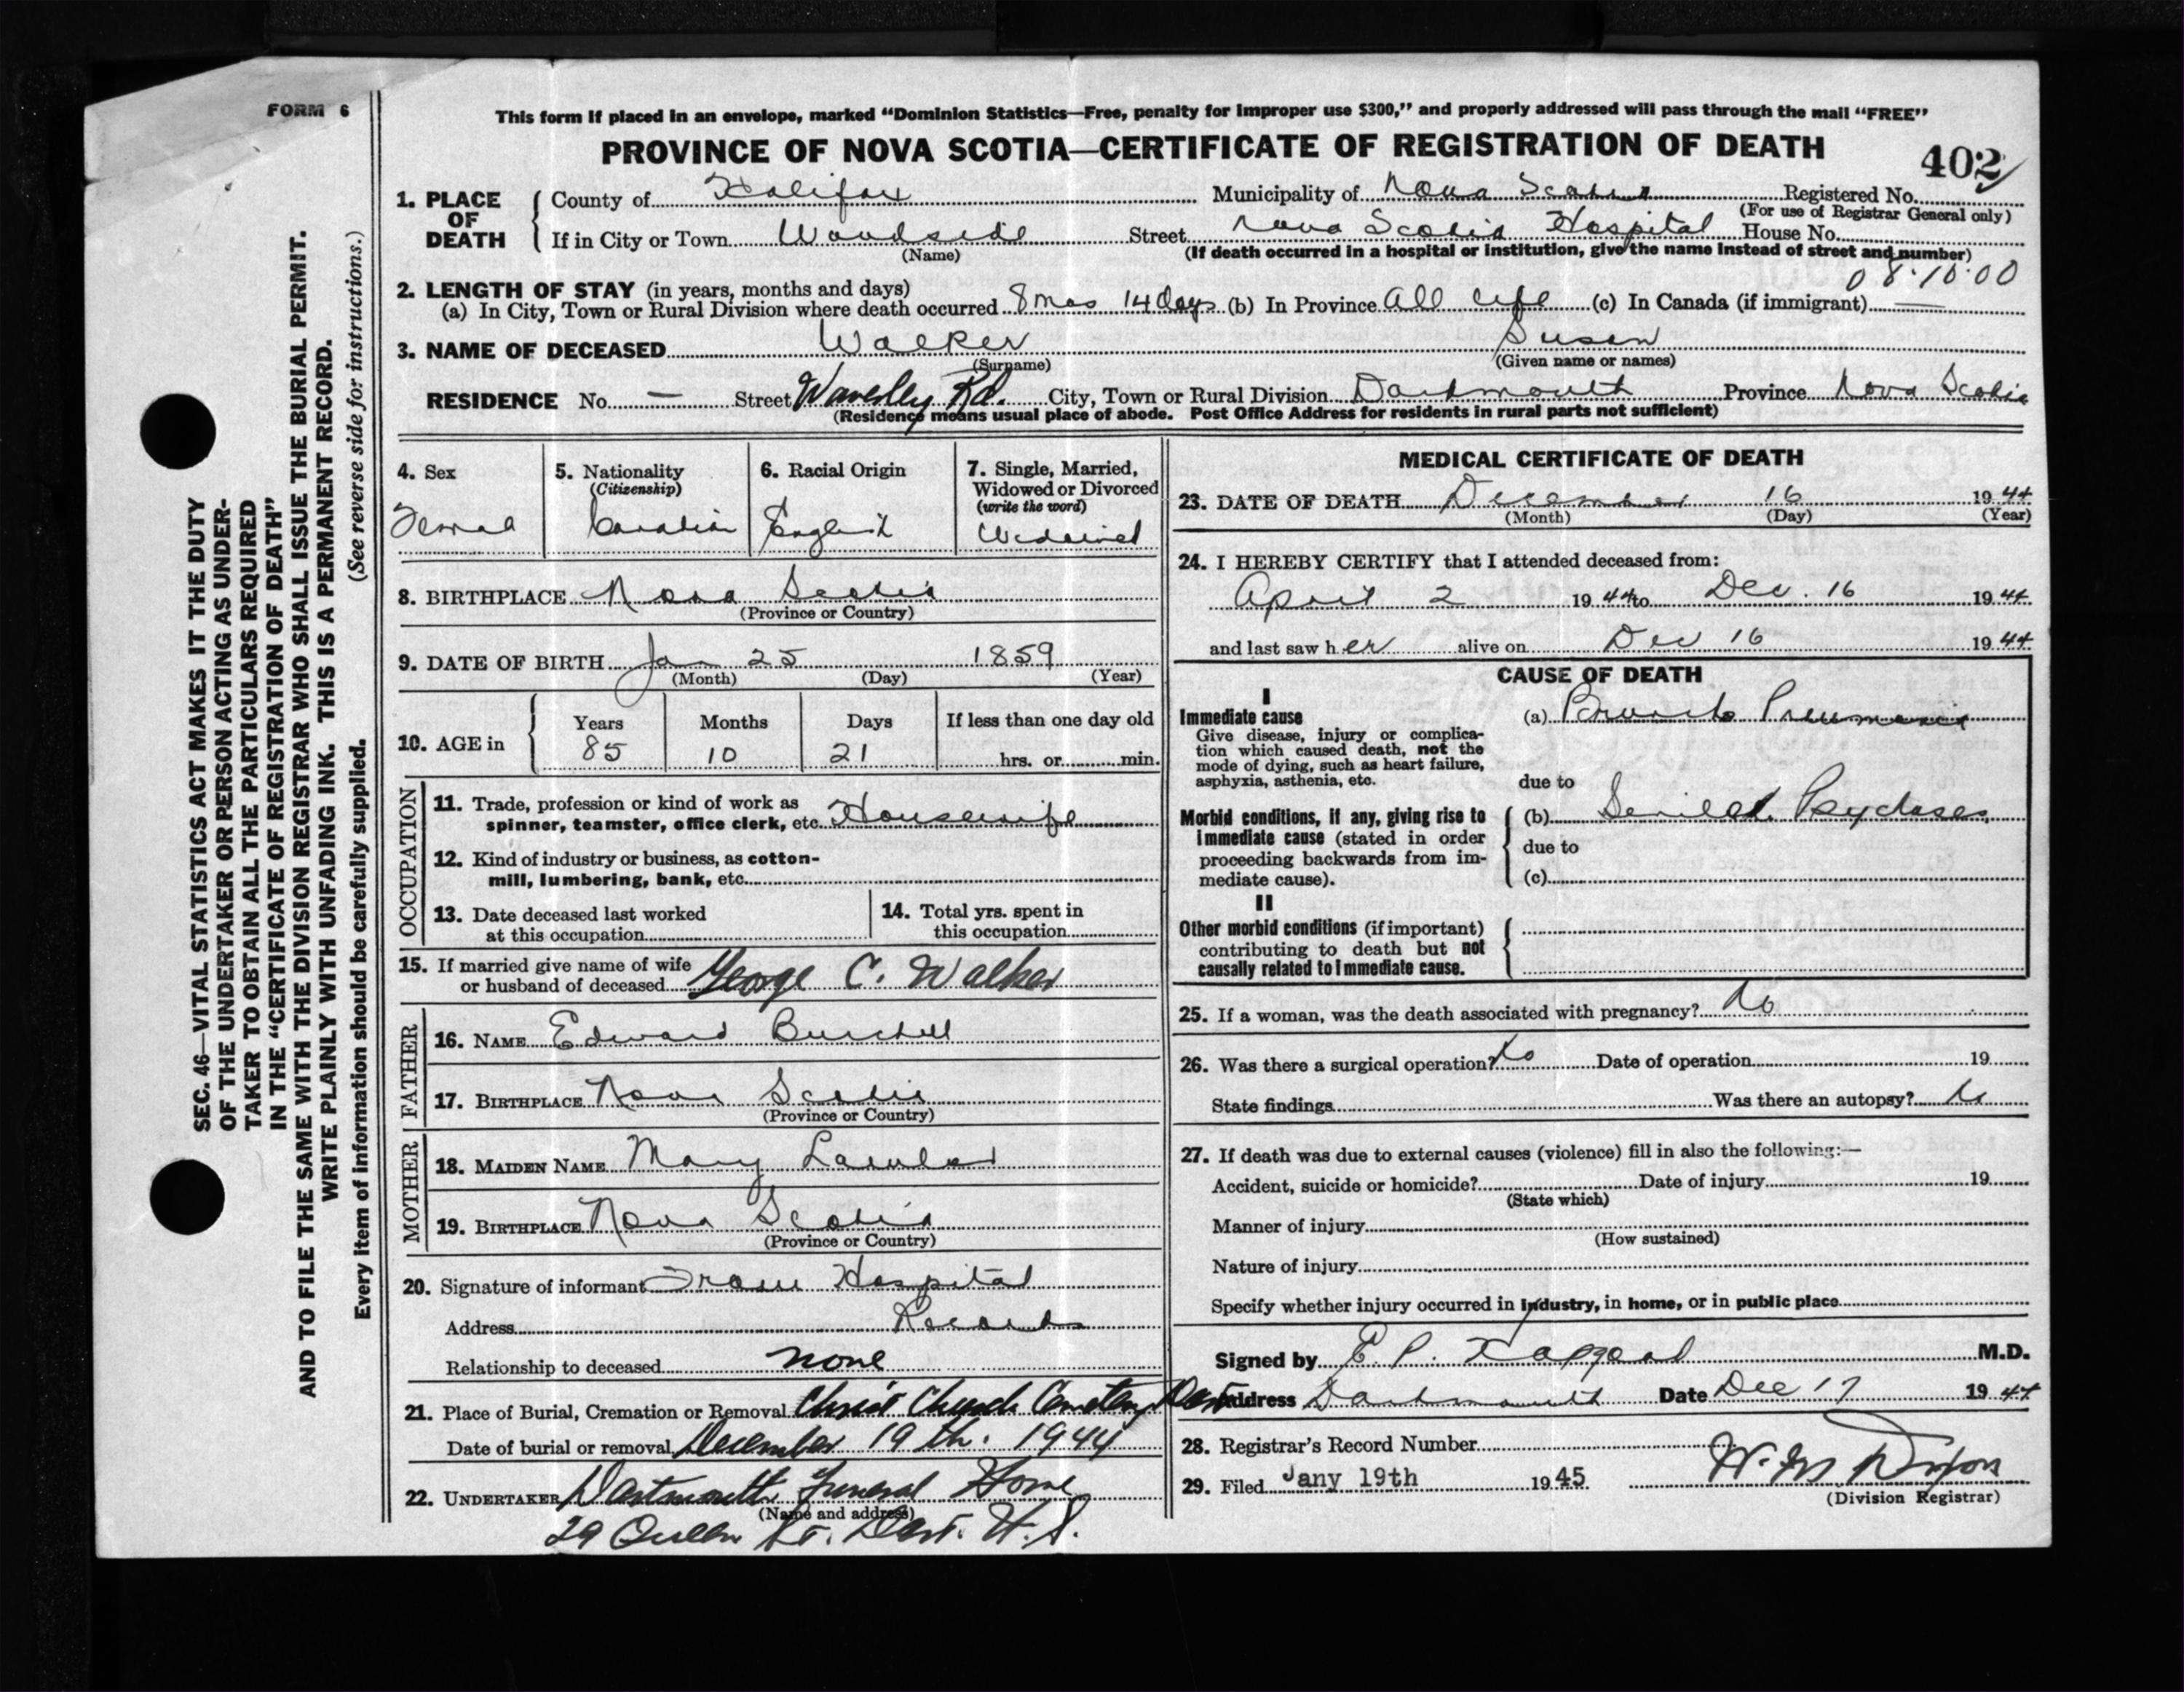 FORM 6
This form if placed in an envelope, marked “Dominion Statistics—Free, penalty for improper use $300,” and properly addressed will pass through the mail “FREE”
PROVINCE OF NOVA SCOTIA—CERTIFICATE OF REGISTRATION OF DEATH
402
1. PLACE OF DEATH
County of Halifax Municipality of Nova Scotia Registered No.
(For use of Registrar General only)
If in City or Town Woodside Street Nova Scotia Hospital House No.
(Name) (If death occurred in a hospital or institution, give the name instead of street and number)
08·10·00
2. LENGTH OF STAY (in years, months and days)
(a) In City, Town or Rural Division where death occurred 8 mos 14 days (b) In Province All life (c) In Canada (if immigrant) —
3. NAME OF DECEASED Walker Susan
(Surname) (Given name or names)
RESIDENCE No. — Street Waverley Rd. City, Town or Rural Division Dartmouth Province Nova Scotia
(Residence means usual place of abode. Post Office Address for residents in rural parts not sufficient)
4. Sex Femal
5. Nationality (Citizenship) Canadian
6. Racial Origin English
7. Single, Married, Widowed or Divorced (write the word) Widowed
8. BIRTHPLACE Nova Scotia
(Province or Country)
9. DATE OF BIRTH Jan 25 1859
(Month) (Day) (Year)
10. AGE in
Years Months Days If less than one day old
85 10 21 hrs. or min.
OCCUPATION
11. Trade, profession or kind of work as
spinner, teamster, office clerk, etc. Housewife
12. Kind of industry or business, as cotton-
mill, lumbering, bank, etc.
13. Date deceased last worked
at this occupation
14. Total yrs. spent in
this occupation
15. If married give name of wife
or husband of deceased George C. Walker
FATHER
16. NAME Edward Burchell
17. BIRTHPLACE Nova Scotia
(Province or Country)
MOTHER
18. MAIDEN NAME Mary Lawlor
19. BIRTHPLACE Nova Scotia
(Province or Country)
20. Signature of informant From Hospital
Address Records
Relationship to deceased none
21. Place of Burial, Cremation or Removal Christ Church Cemetery Dart
Date of burial or removal December 19th. 1944
22. UNDERTAKER Dartmouth Funeral Home
(Name and address)
29 Queen St. Dart. N.S.
MEDICAL CERTIFICATE OF DEATH
23. DATE OF DEATH December 16 1944
(Month) (Day) (Year)
24. I HEREBY CERTIFY that I attended deceased from:
April 2 1944 to Dec. 16 1944
and last saw her alive on Dec 16 1944
CAUSE OF DEATH
I
Immediate cause
Give disease, injury or complica-
tion which caused death, not the
mode of dying, such as heart failure,
asphyxia, asthenia, etc.
(a) Broncho Pneumonia
due to
Morbid conditions, if any, giving rise to
immediate cause (stated in order
proceeding backwards from im-
mediate cause).
(b) Psychoses
due to
(c)
II
Other morbid conditions (if important)
contributing to death but not
causally related to immediate cause.
25. If a woman, was the death associated with pregnancy? No
26. Was there a surgical operation? No Date of operation 19
State findings Was there an autopsy? No
27. If death was due to external causes (violence) fill in also the following:—
Accident, suicide or homicide? Date of injury 19
(State which)
Manner of injury
(How sustained)
Nature of injury
Specify whether injury occurred in industry, in home, or in public place
Signed by E. P. M.D.
Address Dartmouth Date Dec 17 1944
28. Registrar's Record Number
29. Filed Jany 19th 1945
W. M. Dixon
(Division Registrar)
SEC. 46—VITAL STATISTICS ACT MAKES IT THE DUTY
OF THE UNDERTAKER OR PERSON ACTING AS UNDER-
TAKER TO OBTAIN ALL THE PARTICULARS REQUIRED
IN THE “CERTIFICATE OF REGISTRATION OF DEATH”
AND TO FILE THE SAME WITH THE DIVISION REGISTRAR WHO SHALL ISSUE THE BURIAL PERMIT.
WRITE PLAINLY WITH UNFADING INK. THIS IS A PERMANENT RECORD.
Every item of information should be carefully supplied. (See reverse side for instructions.)